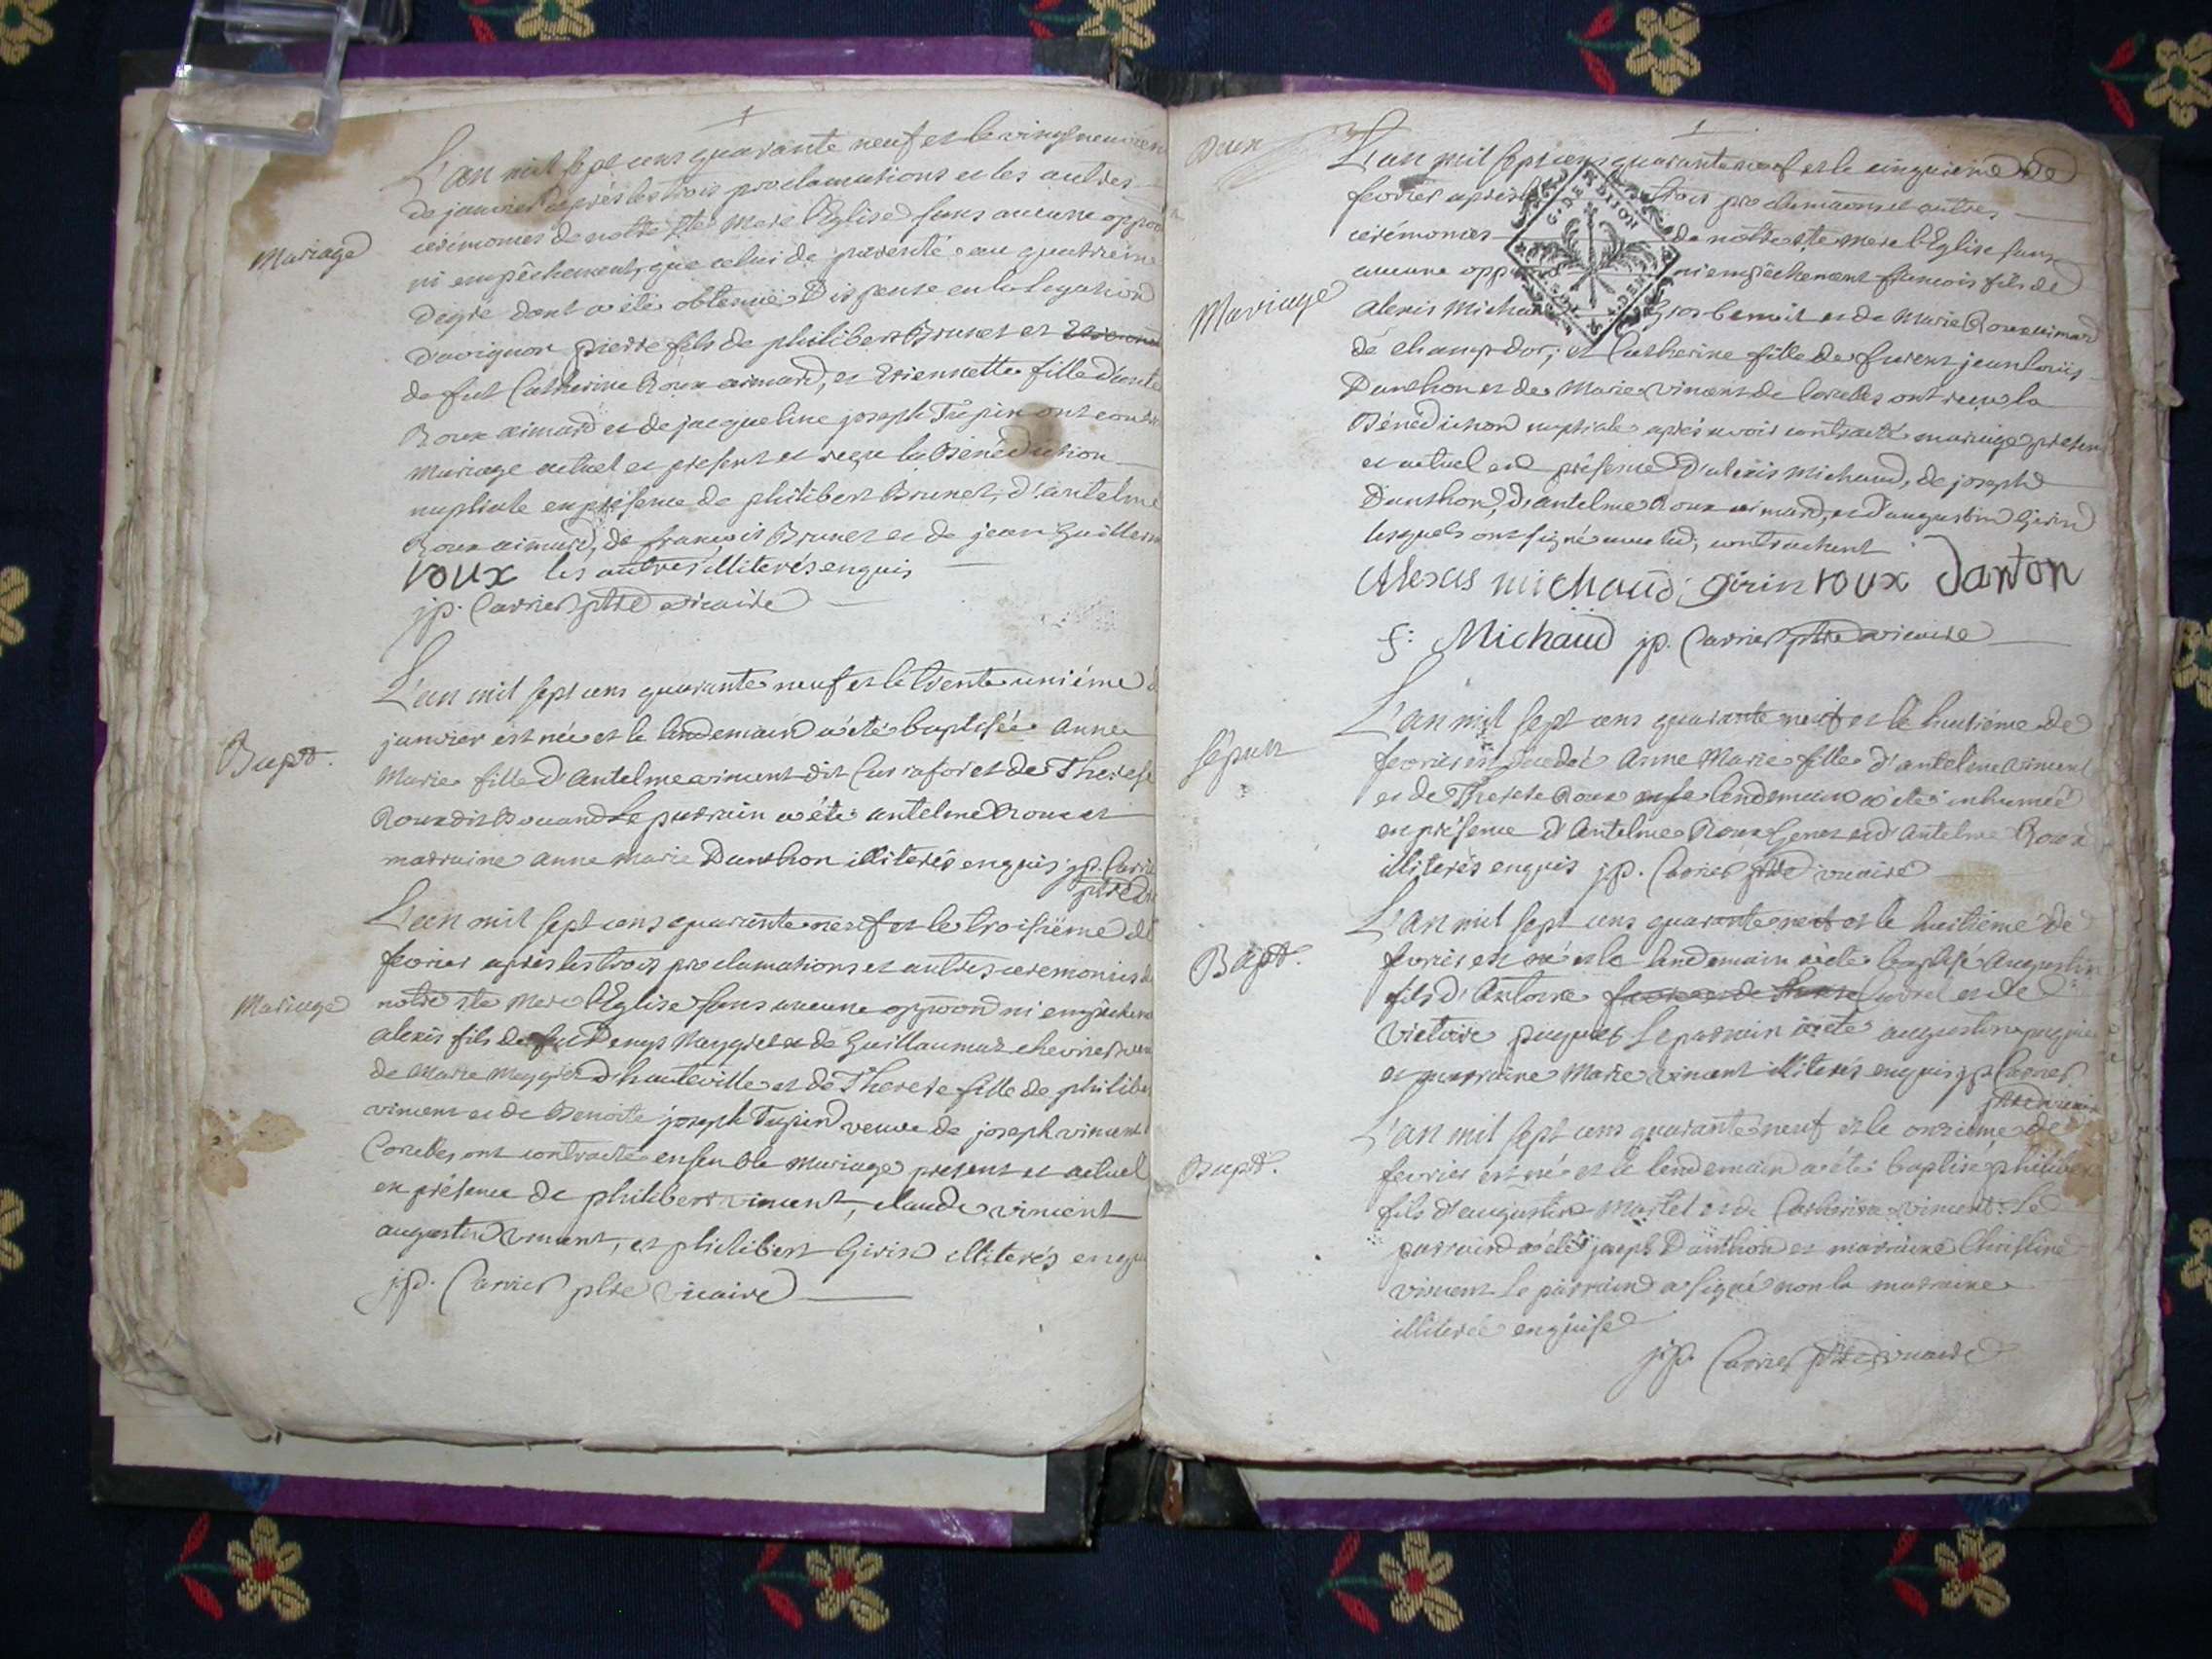 L'an mil sept cens quarante neuf et le vingt neuvieme
de janvier après les trois proclamations et les autres
cerémonies de notre Ste Mere l'Eglise sans aucune oppoon
Mariage
ni empêchement, que celui de parenté au quatrieme
degré dont a été obtenuë Dispense en la Legation
d'avignon pierre fils de philibert Brunet et
de fut Catherine Roux aimard, et Etiennette fille d'antelme
Roux aimard et de jacqueline joseph Tupin ont contracté
mariage actuel et present et reçu la Bénédiction
nuptiale en présence de philibert Brunet, d'antelme
Roux aimard, de françois Brunet et de jean Guillerm
roux les autres illiterés enquis
jp. Carrier ptre vicaire
L'an mil sept cens quarante neuf et le trente uniéme de
janvier est née et le landemain a été baptisée anne
Bapt.
Marie fille d'Antelme vincent dit et de Therese
Roux dit Le parrain a été antelme Roux et
marraine anne marie Danthon illiterés enquis jp. Carrier
ptre
L'an mil sept cens quarante neuf et le troisiéme de
fevrier après les trois proclamations et autres ceremonies de
Mariage
notre ste Mere l'Eglise sans aucune oppoon ni empêchement
alexis fils de fut Denys Meygret et de Guillaumaz
de Marie d'hauteville et de Therese fille de philibert
vincent et de Benoite joseph Tupin veuve de joseph vincent
Corcelles ont contracté ensemble mariage present et actuel
en présence de philibert vincent, claude vincent
augustin vincent, et philibert Girin illiterés enquis
jp. Carrier ptre vicaire
Deux
L'an mil sept cens quarante neuf et le cinquieme de
fevrier après les trois proclamaons et autres
G. DE DIJON
cerémonies de notre ste mere l'Eglise sans
aucune oppoon ni empêchement francois fils de
Mariage
alexis Michaud Gros benoit et de Marie Roux aimard
de champdor; et Catherine fille de furent jean louis
Danthon et de Marie vincent de Corcelles ont reçu la
Bénédiction nuptiale après avoir contracté mariage present
et actuel en présence d'alexis Michaud, de joseph
Danthon, d'antelme Roux aimard, et d'augustin Girin
lesquels ont signé avec led. contractant
Alexis michaud girin roux Danton
f: Michaud jp. Carrier ptre vicaire
L'an mil sept cens quarante neuf et le huitiéme de
Sépult
fevrier est decedé Anne Marie fille d'antelme vincent
et de Therese Roux le lendemain a été inhumée
en présence d'Antelme Roux et d'Antelme Roux
illiterés enquis jp. Carrier ptre vicaire
L'an mil sept cens quarante neuf et le huitiéme de
Bapt.
fevrier est né et le lendemain a été baptisé Augustin
fils d'Antoine Carrel et de
Victoire Le parrain a été augustin
et marraine Marie vincent illiterés enquis jp Carrier
ptre vicaire
L'an mil sept cens quarante neuf et le onzieme de
Bapt.
fevrier est né et le lendemain a été baptisé philibert
fils d'augustin Martel et de Catherine vincent. Le
parrain a été joseph Danthon et marraine Christine
vincent Le parrain a signé non la marraine
illiterée enquise
jp. Carrier ptre vicaire